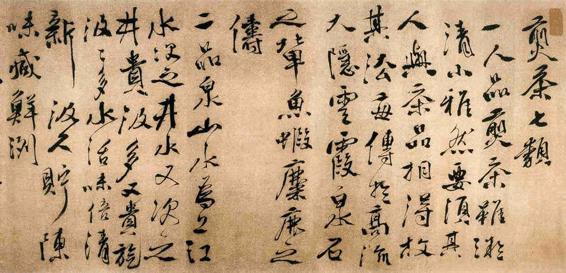 煎茶七類
一人品煎茶雖凝
清小雅然要須其
人與茶品相得故
其法每傳於高流
大隱雲霞泉石
之輩魚蝦麋鹿之
儔
二品泉山水為上江
水次之井水又次之
井貴汲多又貴旋
汲々多水活味倍清
新汲久貯陳
味減鮮洌